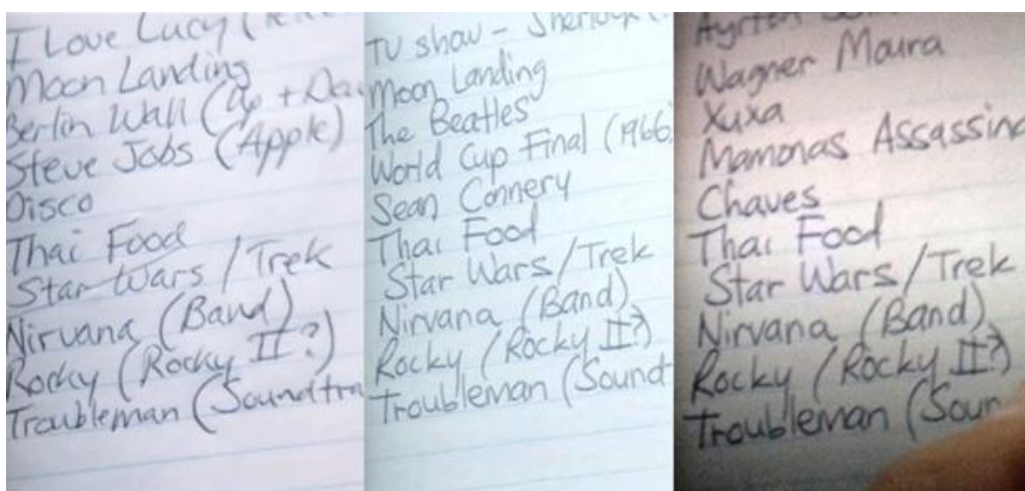 I Love Lucy
Moon Landing
Berlin Wall (up + Da
Steve Jobs (Apple)
Disco
Thai Food
Star Wars / Trek
Nirvana (Band)
Rocky (Rocky II?)
Troubleman (Soundtra
TV show - Sherlock
Moon Landing
The Beatles
World Cup Final (1966
Sean Connery
Thai Food
Star Wars / Trek
Nirvana (Band)
Rocky (Rocky II?)
Troubleman (Sound
Ayrton
Wagner Maura
Xuxa
Mamonas Assassina
Chaves
Thai Food
Star Wars / Trek
Nirvana (Band)
Rocky (Rocky II?)
Troubleman (Soun